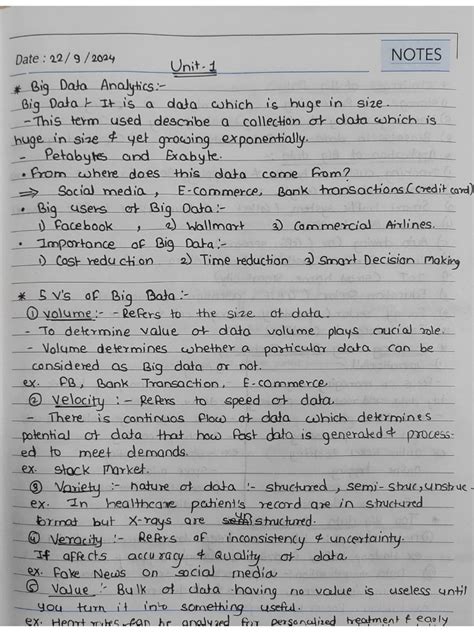 Date : 22/9/2024
NOTES
Unit-1
* Big Data Analytics:-
Big Data :- It is a data which is huge in size.
- This term used describe a collection of data which is
huge in size & yet growing exponentially.
- Petabytes and Exabyte.
• From where does this data come from?
⇒ Social media, E-commerce, Bank transactions (credit card)
• Big users of Big Data:-
1) Facebook , 2) Wallmart 3) Commercial Airlines.
• Importance of Big Data:-
1) Cost reduction 2) Time reduction 3) Smart Decision Making
* 5 V's of Big Data:-
① volume:- - Refers to the size of data.
- To determine value of data volume plays crucial role.
- Volume determines whether a particular data can be
considered as Big data or not.
ex. FB, Bank Transaction, E-commerce
② Velocity :- Refers to speed of data.
- There is continuos flow of data which determines
potential of data that how fast data is generated & process-
ed to meet demands.
ex. stock Market.
③ Variety :- nature of data :- structured, semi-struc, unstruc-
ex. In healthcare patient's record are in structured
format but X-rays are structured.
④ Veracity :- Refers of inconsistency & uncertainty.
If affects accuracy & Quality of data.
ex. Fake News on social media
⑤ Value :- Bulk of data having no value is useless until
you turn it into something useful.
ex. Heart can be analyzed for personalized treatment & early